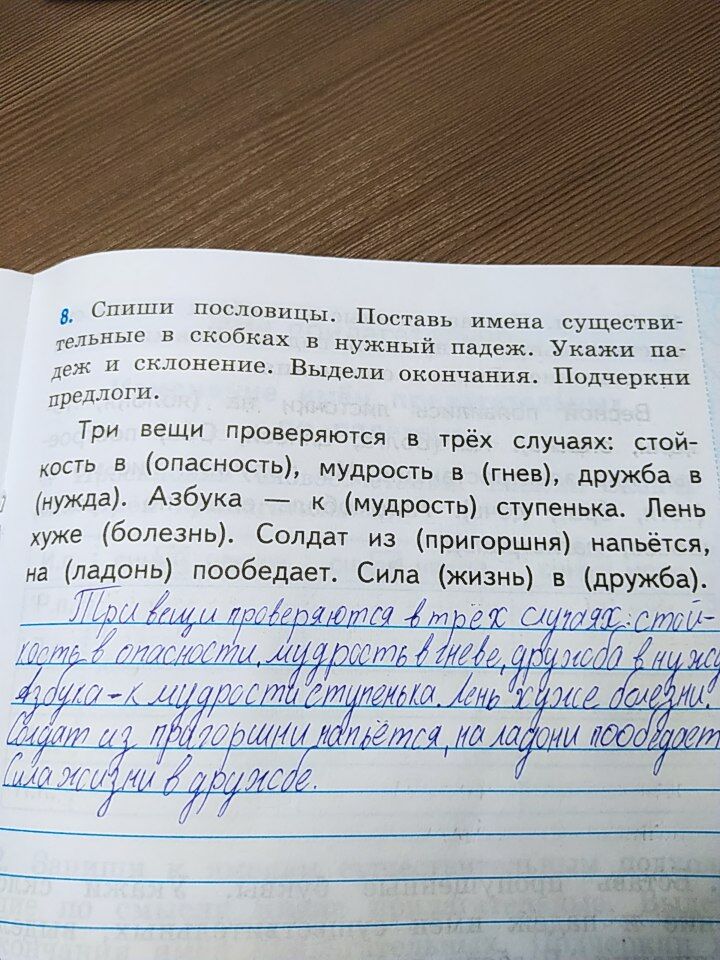 8. Спиши пословицы. Поставь имена существи-
тельные в скобках в нужный падеж. Укажи па-
деж и склонение. Выдели окончания. Подчеркни
предлоги.
Три вещи проверяются в трёх случаях: стой-
кость в (опасность), мудрость в (гнев), дружба в
(нужда). Азбука — к (мудрость) ступенька. Лень
хуже (болезнь). Солдат из (пригоршня) напьётся,
на (ладонь) пообедает. Сила (жизнь) в (дружба).
Три вещи проверяются в трёх случаях: стой-
кость в опасности, мудрость в гневе, дружба в нужд
Азбука - к мудрости ступенька. Лень хуже болезни.
Солдат из пригоршни напьётся, на ладони пообедает
Сила жизни в дружбе.